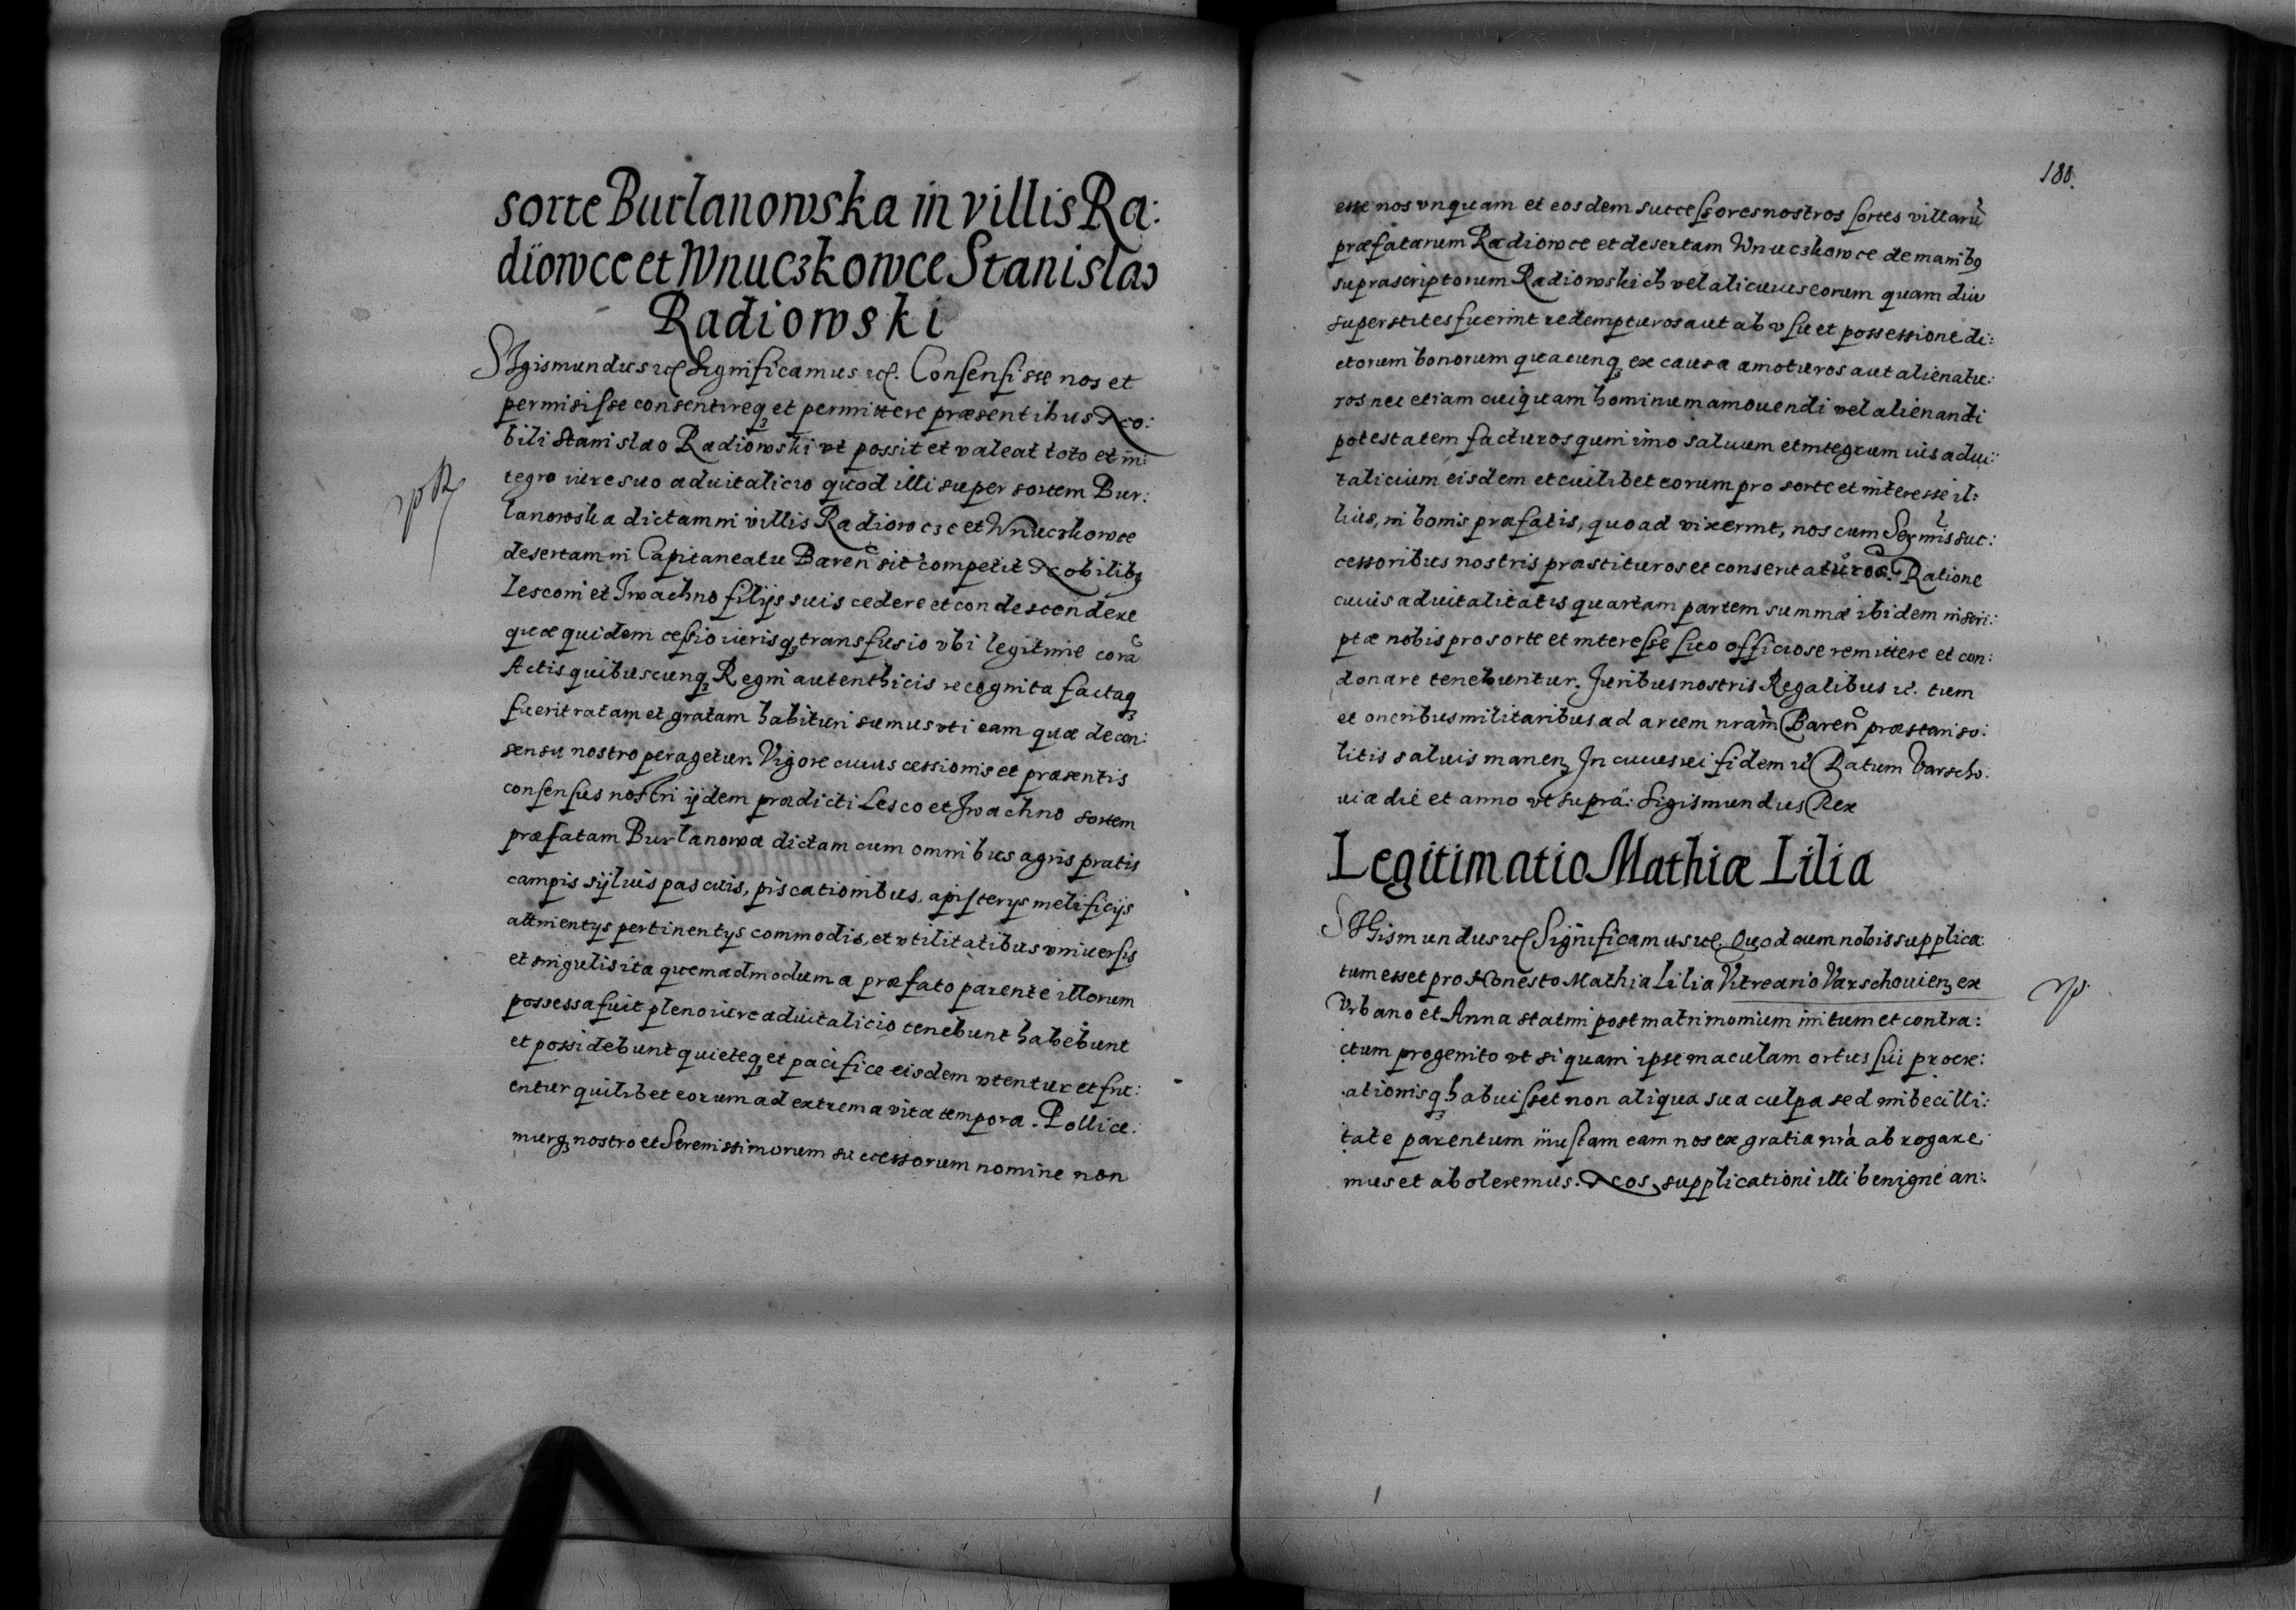 sorte Burlanowska in villis Ra:
diowce et Wnuczkowce Stanislao
Radiowski
SIgismundus etc. Significamus etc. Consensisse nos et
permisisse consentireq3 et permittere præsentibus No:
bili Stanislao Radiowski vt possit et valeat toto et in:
tegro iure suo aduitalicio quod illi super sortem Bur:
lanowska dictam in villis Radiowcze et Wnuczkowce
desertam in Capitaneatu Baren̄ sit̄ competit Nobilib9
Lesconi et Iwachno filijs suis cedere et condescendere
quæ quidem cessio iurisq3 transfusio vbi legitime corā
Actis quibuscunq3 Regni autenthicis recognita factaq3
fuerit ratam et gratam habituri sumus vti eam quæ de con:
sensu nostro peragetur. Vigore cuius cessionis et præsentis
consensus nostri ijdem prædicti Lesco et Iwachno sortem
præfatam Burlanowa dictam cum omnibus agris pratis
campis syluis pascuis, piscationibus, apisterys melificijs
attinentys pertinentys commodis, et vtilitatibus vniuersis
et singulis ita quemadmodum a præfato parente illorum
possessa fuit pleno iure aduitalicio tenebunt habebunt
et possidebunt quieteq3 et pacifice eisdem vtentur et fru:
entur quilibet eorum ad extrema vitæ tempora. Pollice:
murq3 nostro et Serenissimorum successorum nomine non
188.
esse nos vnquam et eosdem successores nostros sortes villarū
præfatarum Radiowce et desertam Wnuczkowce de manib9
suprascriptorum Radiowskich vel alicuius eorum quam diu
superstites fuerint redempturos aut ab vsu et possessione di:
ctorum bonorum quacunq3 ex causa amoturos aut alienatu:
ros nec etiam cuiquam hominum amouendi vel alienandi
potestatem facturos quin imo saluum et integrum ius adui:
talicium eisdem et cuilibet eorum pro sorte et interesse il:
lius, in bonis præfatis, quoad vixerint, nos cum Sermis suc:
cessoribus nostris præstituros et conseruaturos. Ratione
cuius aduitalitatis quartam partem summæ ibidem inscri:
ptæ nobis pro sorte et interesse suo officiose remittere et con:
donare tenebuntur. Iuribus nostris Regalibus etc. tum
et oneribus militaribus ad arcem nram̄ Baren̄ præstari so:
litis saluis manen3 In cuius rei fidem etc Datum Varscho:
uiæ die et anno vt supra: Sigismundus Rex
Legitimatio Mathiæ Lilia
SIgismundus etc Significamus etc. Quod cum nobis supplica:
tum esset pro Honesto Mathia Lilia Vitreario Varschouien3 ex
Vrbano et Anna statim post matrimonium initum et contra:
ctum progenito vt si quam ipse maculam ortus sui procre:
ationisq3 habuisset non aliqua sua culpa sed imbecilli:
tate parentum iniustam eam nos ex gratia nrā abrogare:
mus et aboleremus. Nos supplicationi illi benigne an: